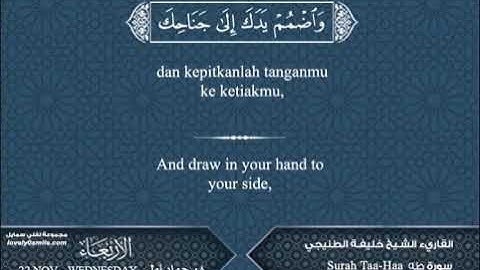 وَٱضْمُمْ يَدَكَ إِلَىٰ جَنَاحِكَ
dan kepitkanlah tanganmu
ke ketiakmu,
And draw in your hand to
your side,
القاريء الشيخ خليفة الطنيجي
سورة طه Surah Taa-Haa
الأربعاء
WEDNESDAY
مجموعة تفني سمايل
lovely0smile.com